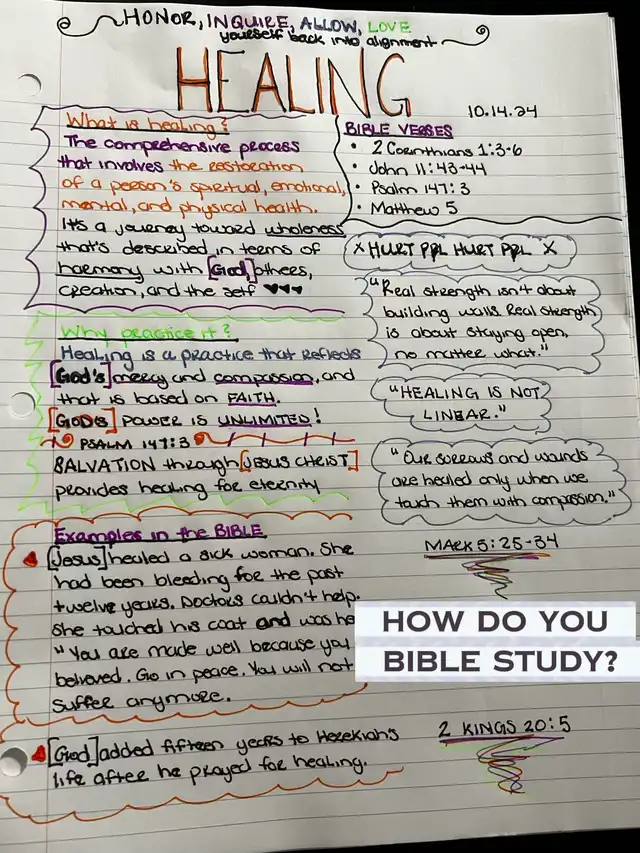 HONOR, INQUIRE, ALLOW, LOVE
yourself back into alignment
HEALING
10.14.24
What is healing?
The comprehensive process
that involves the restoration
of a person's spiritual, emotional,
mental, and physical health.
It's a journey toward wholeness
that's described in terms of
harmony with [God,] others,
creation, and the self ♥♥♥
BIBLE VERSES
• 2 Corinthians 1:3-6
• John 11:43-44
• Psalm 147:3
• Matthew 5
X HURT PPL HURT PPL X
"Real strength isn't about
building walls. Real strength
is about staying open,
no matter what."
"HEALING IS NOT
LINEAR."
"Our sorrows and wounds
are healed only when we
touch them with compassion."
Why practice it?
Healing is a practice that reflects
[God's] mercy and compassion, and
that is based on FAITH.
[GOD'S] POWER IS UNLIMITED!
PSALM 147:3
SALVATION through [JESUS CHRIST]
provides healing for eternity
Examples in the BIBLE
[Jesus] healed a sick woman. She
had been bleeding for the past
twelve years. Doctors couldn't help.
She touched his coat and was he
"You are made well because you
believed. Go in peace. You will not
suffer anymore.
MARK 5:25-34
[God] added fifteen years to Hezekiah's
life after he prayed for healing.
2 KINGS 20:5
HOW DO YOU
BIBLE STUDY?